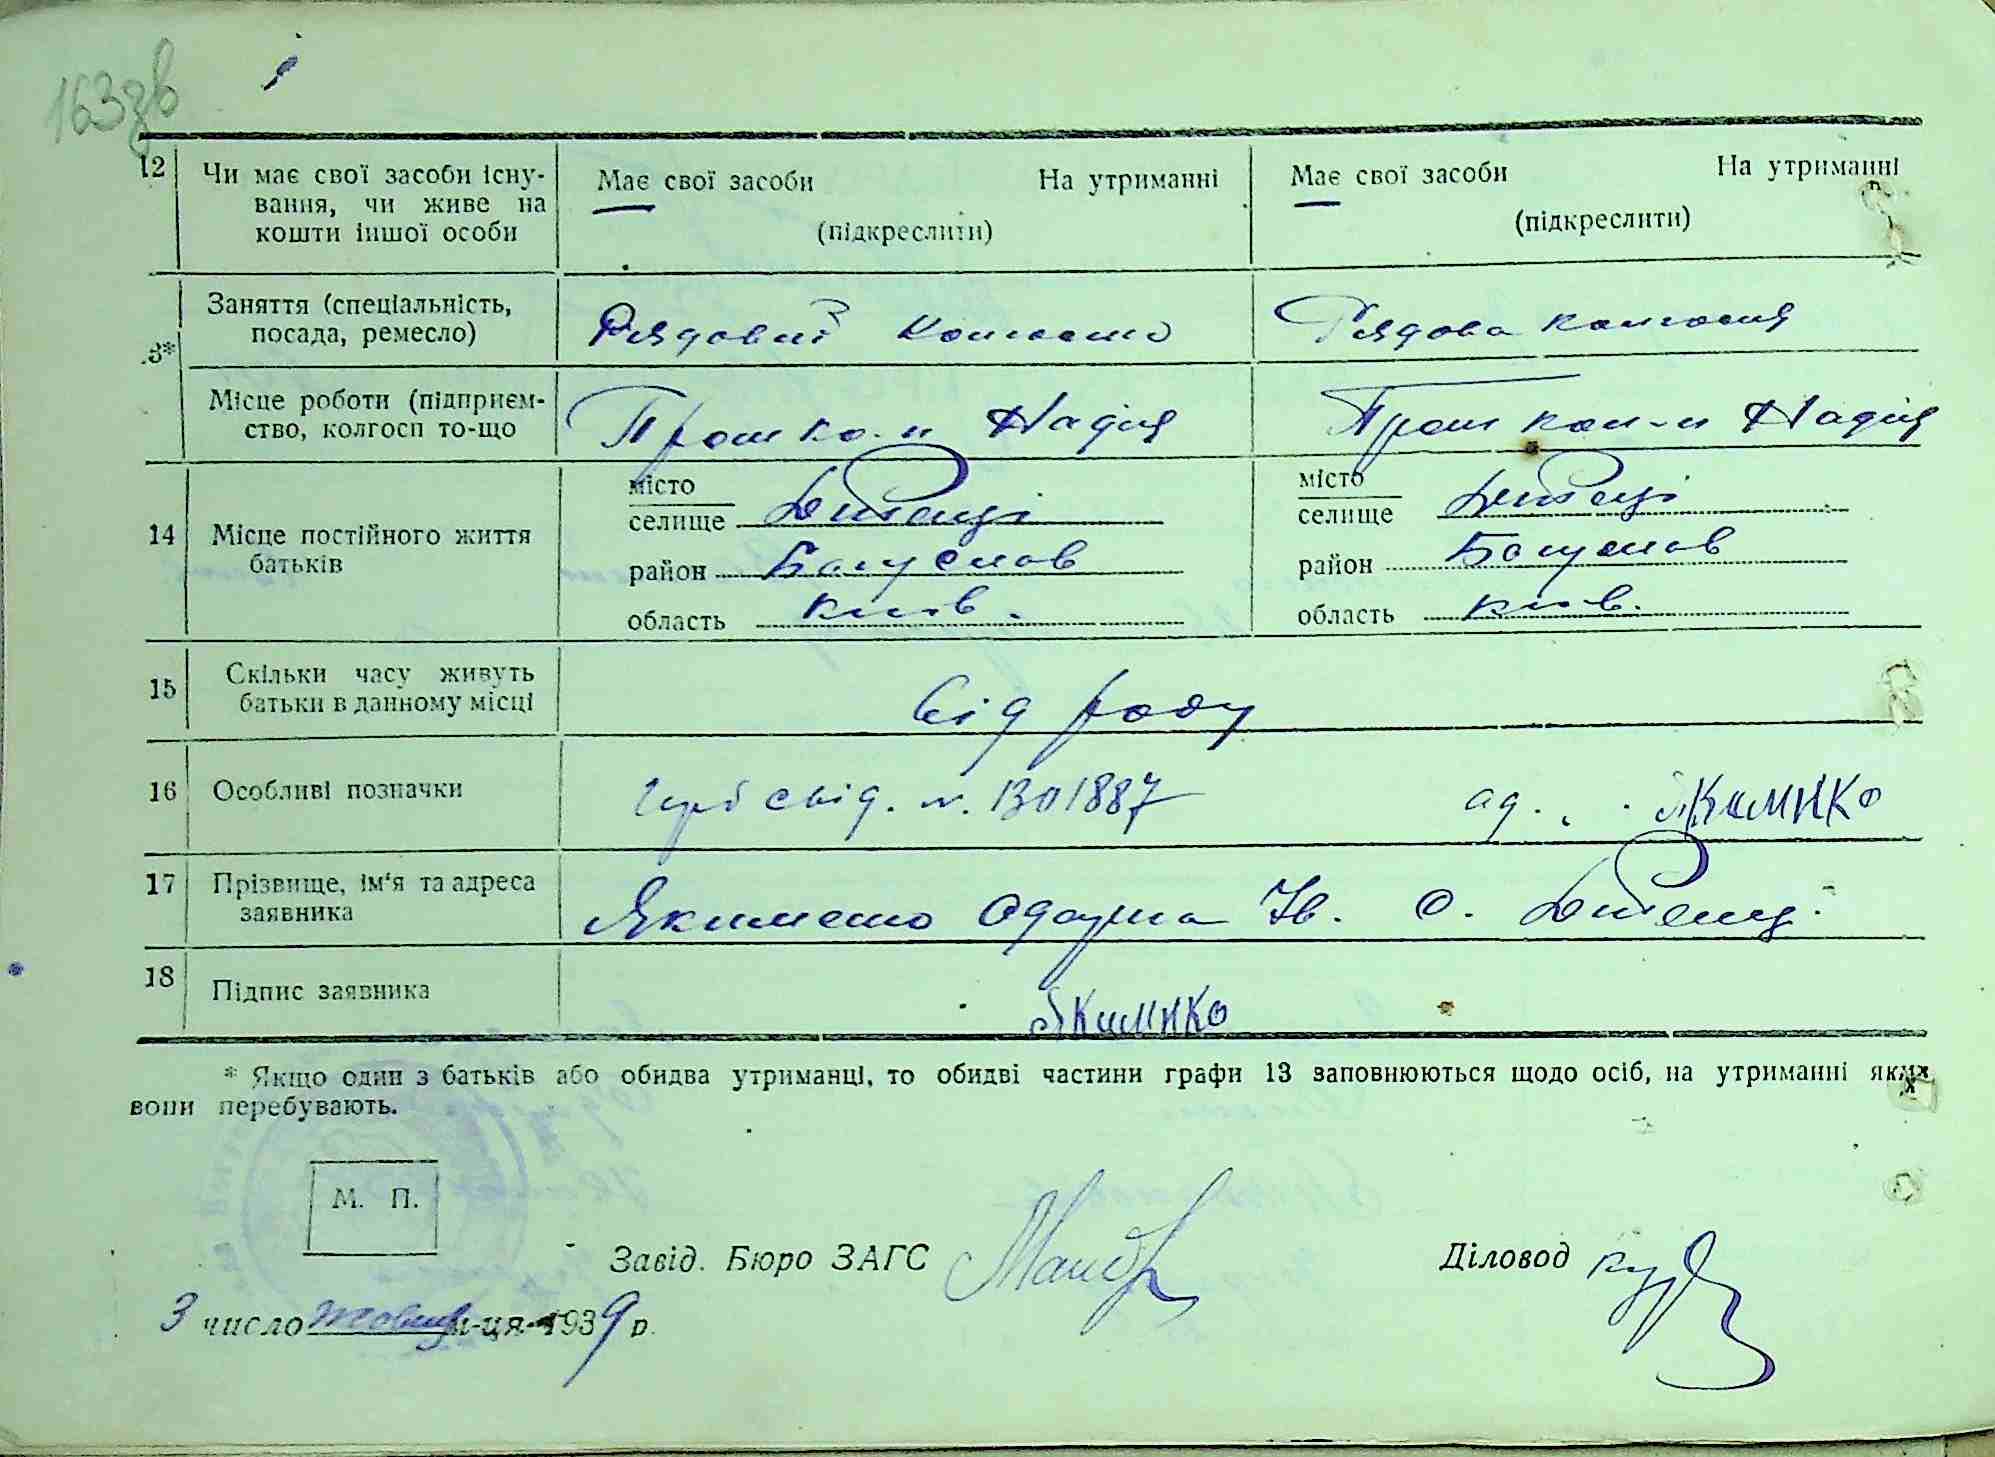 163зв
12 Чи має свої засоби існу- Має свої засоби На утриманні Має свої засоби На утриманні
вання, чи живе на (підкреслити) (підкреслити)
кошти іншої особи
Заняття (спеціальність, Рядовий Рядова
посада, ремесло)
3*
Місце роботи (підприєм- Надія Надія
ство, колгосп то-що
місто місто
селище селище
14 Місце постійного життя
батьків район Богуслав район Богуслав
область Київ. область Київ.
15 Скільки часу живуть від роду
батьки в данному місці
16 Особливі позначки свід. н. 1301887 ад. Якимнко
17 Прізвище, ім'я та адреса Якименко Ів. с.
заявника
18 Підпис заявника Якимнко
* Якщо один з батьків або обидва утриманці, то обидві частини графи 13 заповнюються щодо осіб, на утриманні яких
вони перебувають.
М. П.
Завід. Бюро ЗАГС Діловод
3 число жовтня м-ця 1939 р.